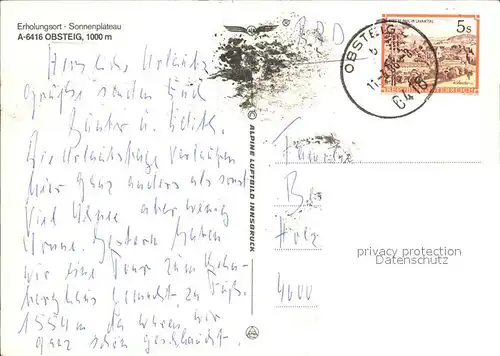 Erholungsort - Sonnenplateau
A-6416 OBSTEIG, 1000 m
Herzliche Urlaubs-
grüße senden Euch
Günter u. Edith.
Die Urlaubstage verlaufen
hier ganz anders als sonst
viel aber wenig
Sonne. Gestern haben
wir eine Tour zum
berghaus gemacht, zu Fuß.
1554 m da waren wir
ganz schön geschlaucht.
© ALPINE LUFTBILD INNSBRUCK
BRD
OBSTEIG
6416
5 S
REPUBLIK ÖSTERREICH
Familie
privacy protection
Datenschutz
4600